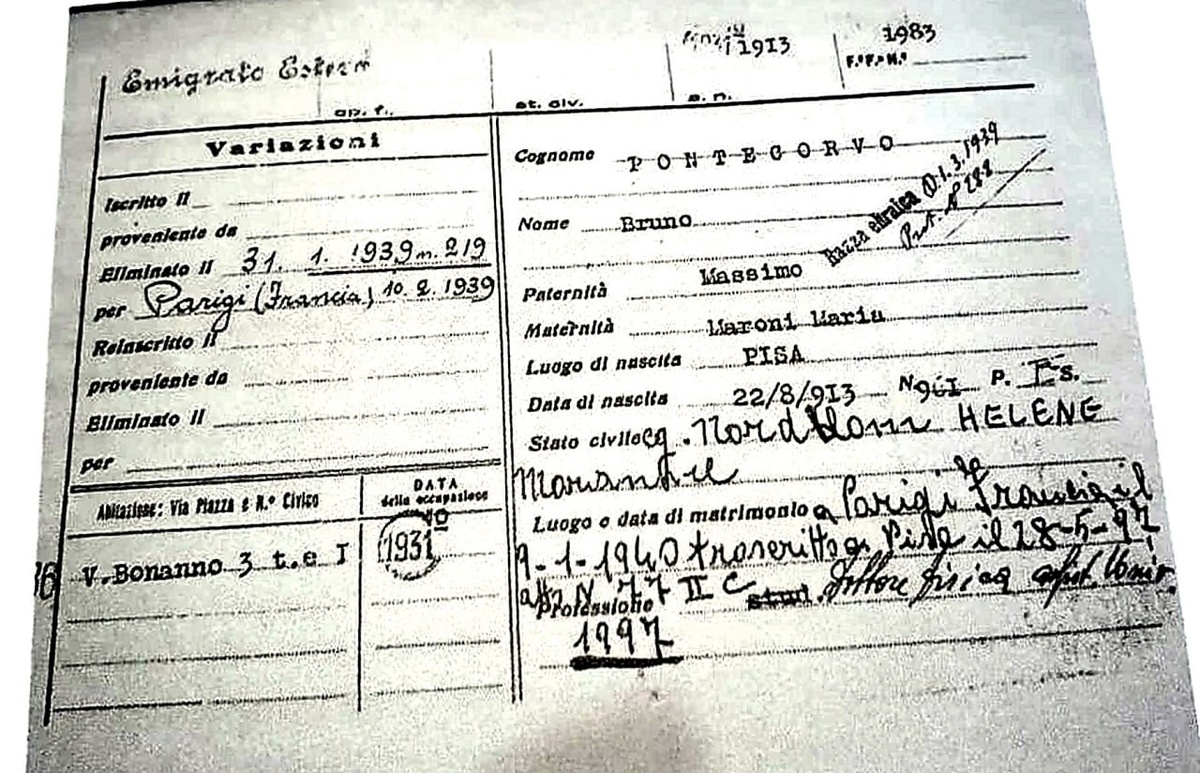 Emigrato Estero
1913
1983
F.°F.°N.°
ap. f.
st. civ.
a. n.
Variazioni
Iscritto il
proveniente da
Eliminato il 31. 1. 1939 n. 219
per Parigi (Francia) 10. 2. 1939
Reinscritto il
proveniente da
Eliminato il
per
Abitazione: Via Piazza e N.° Civico
DATA
della occupazione
V. Bonanno 3 t. e I
1931
Cognome PONTECORVO
Nome Bruno
Razza ebraica D. 1.3.1939
Prot. N 288
Paternità Massimo
Maternità Maroni Maria
Luogo di nascita PISA
Data di nascita 22/8/9I3 N 96I P. I Es.
Stato civile cg. Nordblom HELENE
Marianne
Luogo e data di matrimonio a Parigi Francia il
9-1-1940 trascritto a Pisa il 28-5-97
atto N 77 II C
Professione stud. Dottore fisica
1997